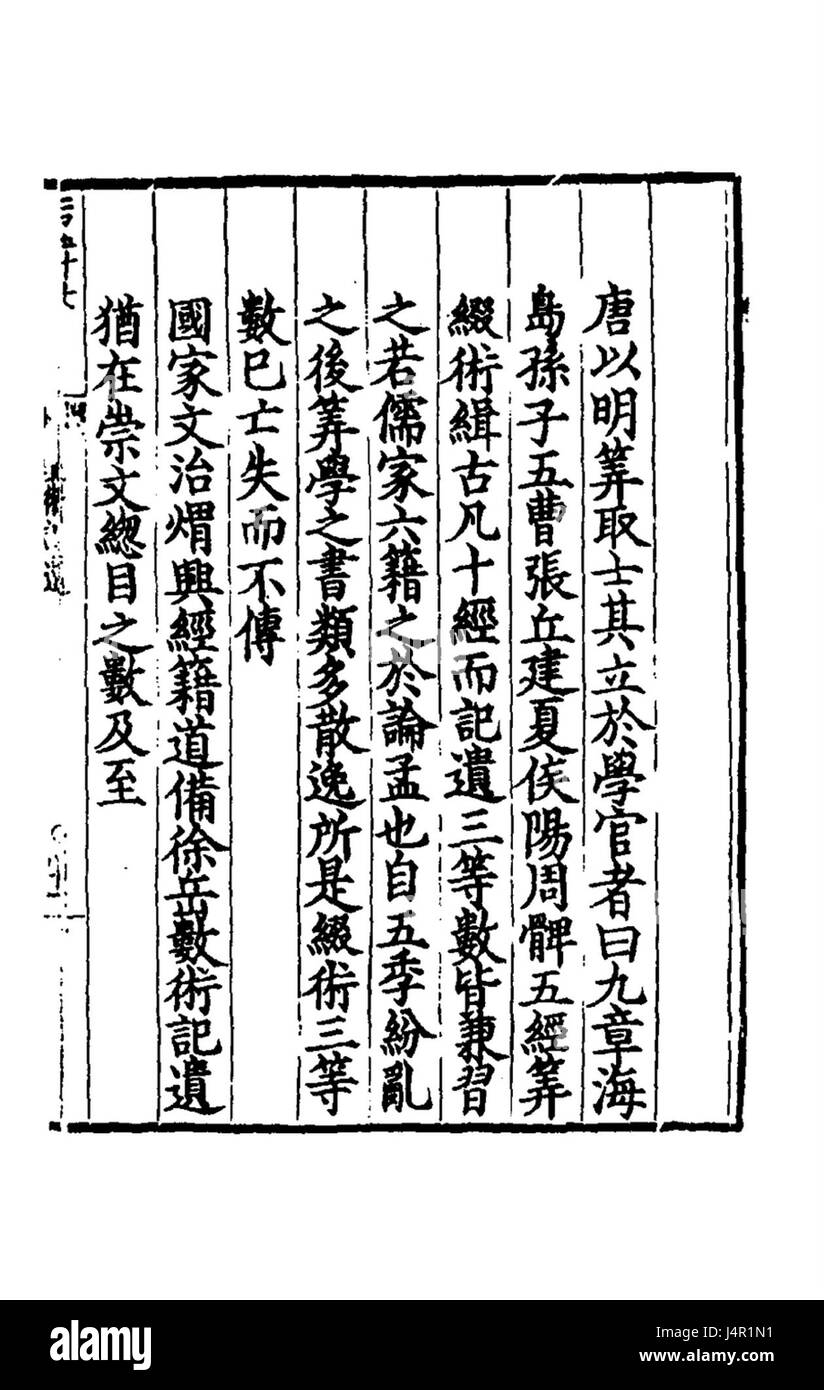 唐以明筭取士其立於學官者曰九章海
島孫子五曹張丘建夏侯陽周髀五經筭
綴術緝古凡十經而記遺三等數皆兼習
之若儒家六籍之於論孟也自五季紛亂
之後筭學之書類多散逸所是綴術三等
數已亡失而不傳
國家文治煟興經籍道備徐岳數術記遺
猶在崇文緫目之數及至
alamy
Image ID: J4R1N1
www.alamy.com